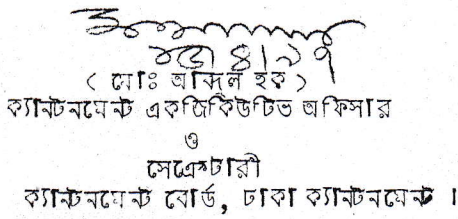 ( মোঃ আব্দুল হক )
ক্যান্টনমেন্ট একজিকিউটিভ অফিসার
ও
সেক্রেটারী
ক্যান্টনমেন্ট বোর্ড, ঢাকা ক্যান্টনমেন্ট ।